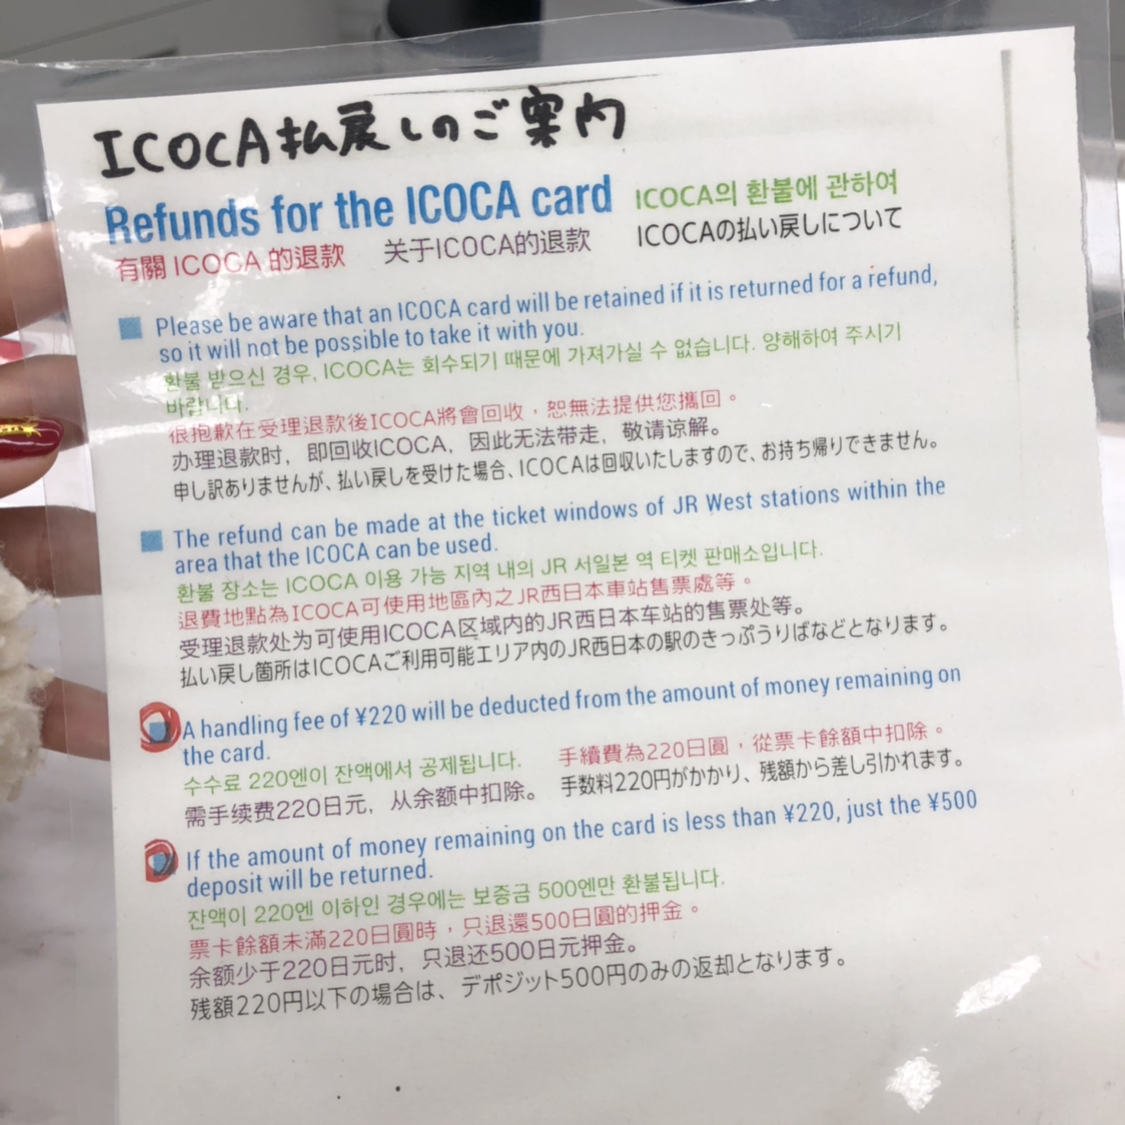 ICOCA払戻しのご案内
Refunds for the ICOCA card
ICOCA의 환불에 관하여
有關 ICOCA 的退款
关于ICOCA的退款
ICOCAの払い戻しについて
Please be aware that an ICOCA card will be retained if it is returned for a refund,
so it will not be possible to take it with you.
환불 받으신 경우, ICOCA는 회수되기 때문에 가져가실 수 없습니다. 양해하여 주시기
바랍니다.
很抱歉在受理退款後ICOCA將會回收，恕無法提供您攜回。
办理退款时，即回收ICOCA，因此无法带走，敬请谅解。
申し訳ありませんが、払い戻しを受けた場合、ICOCAは回収いたしますので、お持ち帰りできません。
The refund can be made at the ticket windows of JR West stations within the
area that the ICOCA can be used.
환불 장소는 ICOCA 이용 가능 지역 내의 JR 서일본 역 티켓 판매소입니다.
退費地點為ICOCA可使用地區內之JR西日本車站售票處等。
受理退款处为可使用ICOCA区域内的JR西日本车站的售票处等。
払い戻し箇所はICOCAご利用可能エリア内のJR西日本の駅のきっぷうりばなどとなります。
A handling fee of ¥220 will be deducted from the amount of money remaining on
the card.
수수료 220엔이 잔액에서 공제됩니다.
手續費為220日圓，從票卡餘額中扣除。
需手续费220日元，从余额中扣除。
手数料220円がかかり、残額から差し引かれます。
If the amount of money remaining on the card is less than ¥220, just the ¥500
deposit will be returned.
잔액이 220엔 이하인 경우에는 보증금 500엔만 환불됩니다.
票卡餘額未滿220日圓時，只退還500日圓的押金。
余额少于220日元时，只退还500日元押金。
残額220円以下の場合は、デポジット500円のみの返却となります。